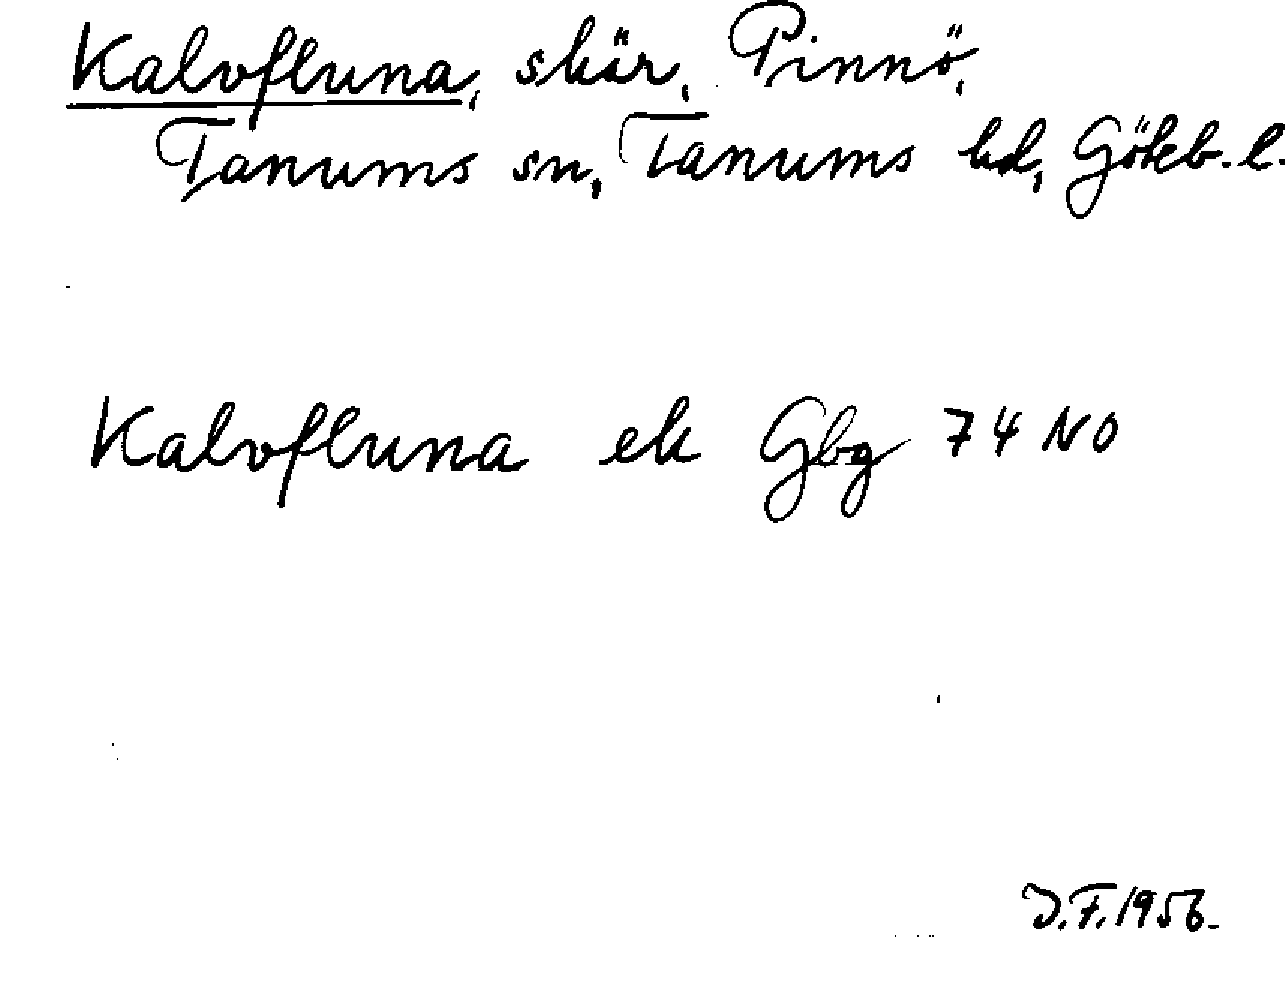 Kalvfluna, skär, Pinnö,
Tanums sn, Tanums hd, Göteb. l.
Kalvfluna ek Gbg 74 NO
J.F. 1956.